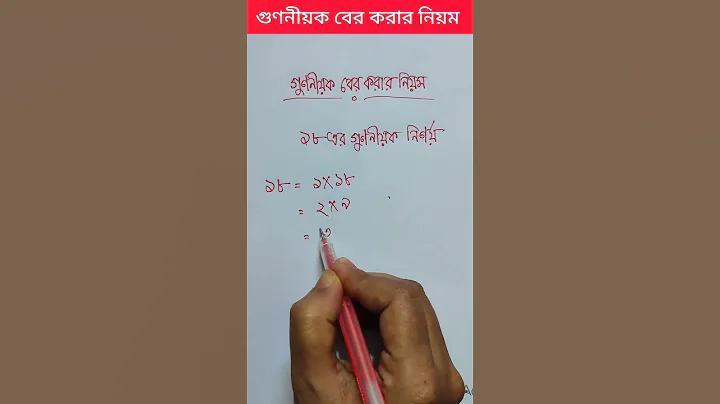 গুণনীয়ক বের করার নিয়ম
গুণনীয়ক বের করার নিয়ম
১৮ এর গুণনীয়ক নির্ণয়
১৮ = ১×১৮
= ২×৯
= ৩